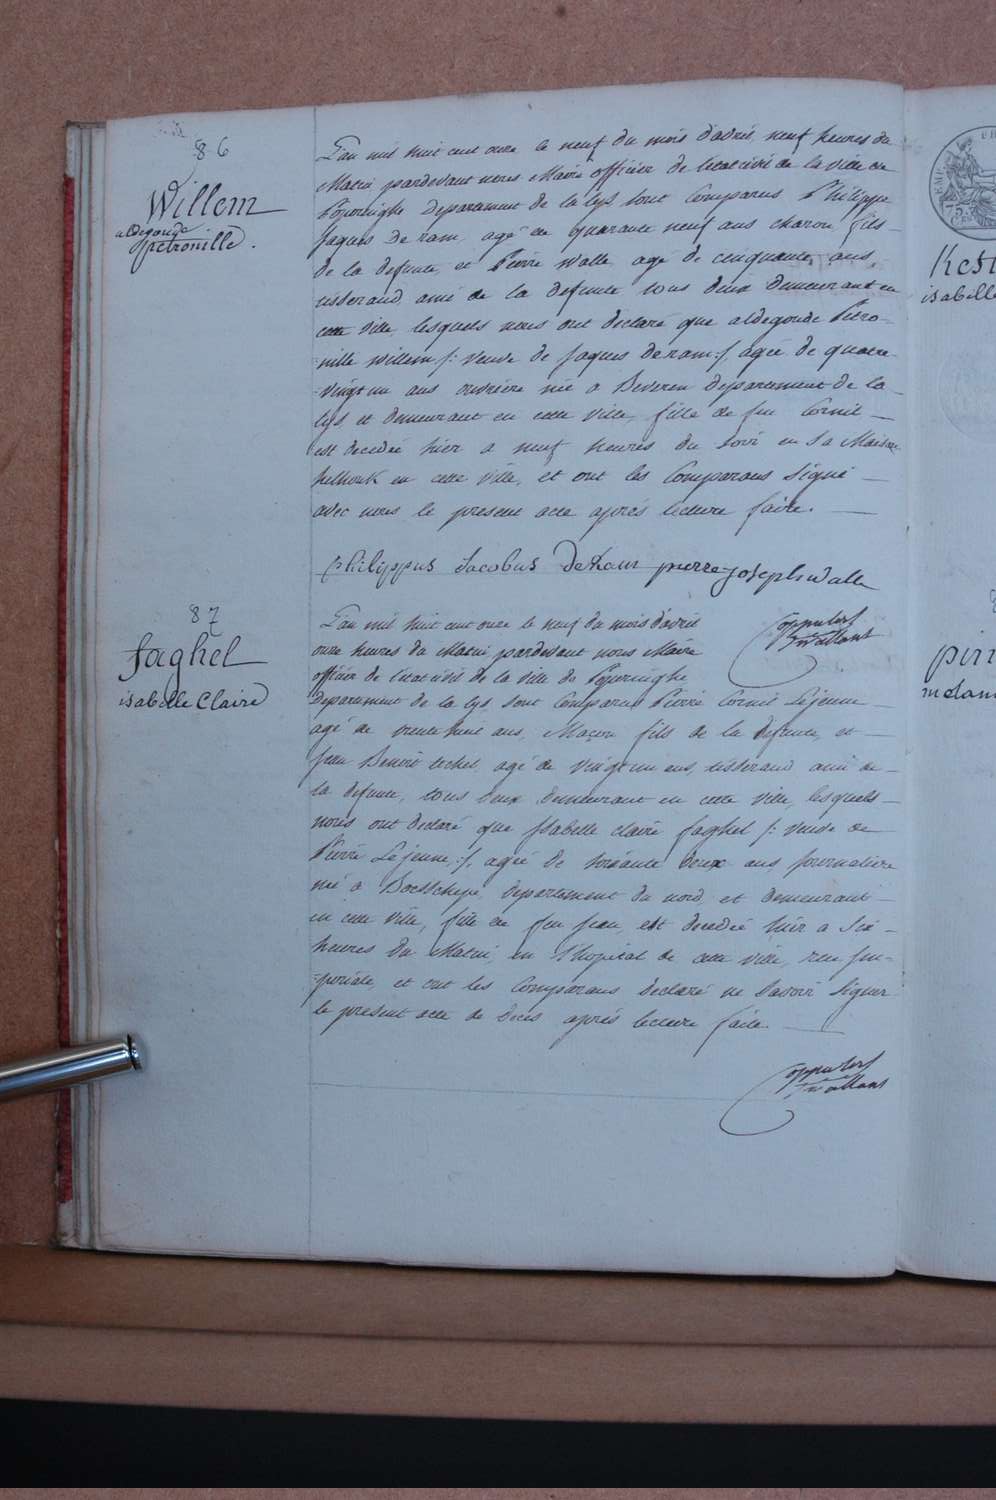 86
Willem
aldegonde
petronille.
L'an mil huit cent onze le neuf du mois d'avril neuf heures du
Matin pardevant nous Maire officier de l'état civil de la ville de
Poperinghe departement de la Lys sont Comparus Philippe
Jaques De ram, agé de quarante neuf ans charon, fils
de la defunte, et Pierre Walle agé de cinquante ans,
tisserand, ami de la defunte tous deux demeurant en
cette ville, lesquels nous ont declaré que aldegonde Petro-
nille willem /: veuve de Jaques deram :/, agée de quatre
vingt un ans ouvrière née a Beveren departement de la
Lys et demeurant en cette ville, fille de feu Cornil
est decedée hier a neuf heures du soir en sa Maison
en cette ville, et ont les Comparans signé
avec nous le present acte après lecture faite.
philippus Jacobus DeRam pierre joseph walle
87
faghel
isabelle Claire
L'an mil huit cent onze le neuf du mois d'avril
onze heures du Matin pardevant nous Maire
officier de l'état civil de la ville de Poperinghe
departement de la Lys, sont Comparus Pierre Cornil Lejeune
agé de trente huit ans, Maçon fils de la defunte, et
Jean Benoit agé de vingt un ans, tisserand ami de
la defunte, tous deux demeurant en cette ville, lesquels
nous ont declaré que Isabelle claire faghel /: veuve de
Pierre Lejeune :/, agée de soixante deux ans, journaliere
née a Boeschepe, departement du nord, et demeurant
en cette ville, fille de feu Jean, est decedée hier a six
heures du Matin, en l'hopital de cette ville, rue Im-
=periale, et ont les Comparans declaré ne savoir signer
le present acte de deces après lecture faite.
Kest
isabelle
pirr
melani